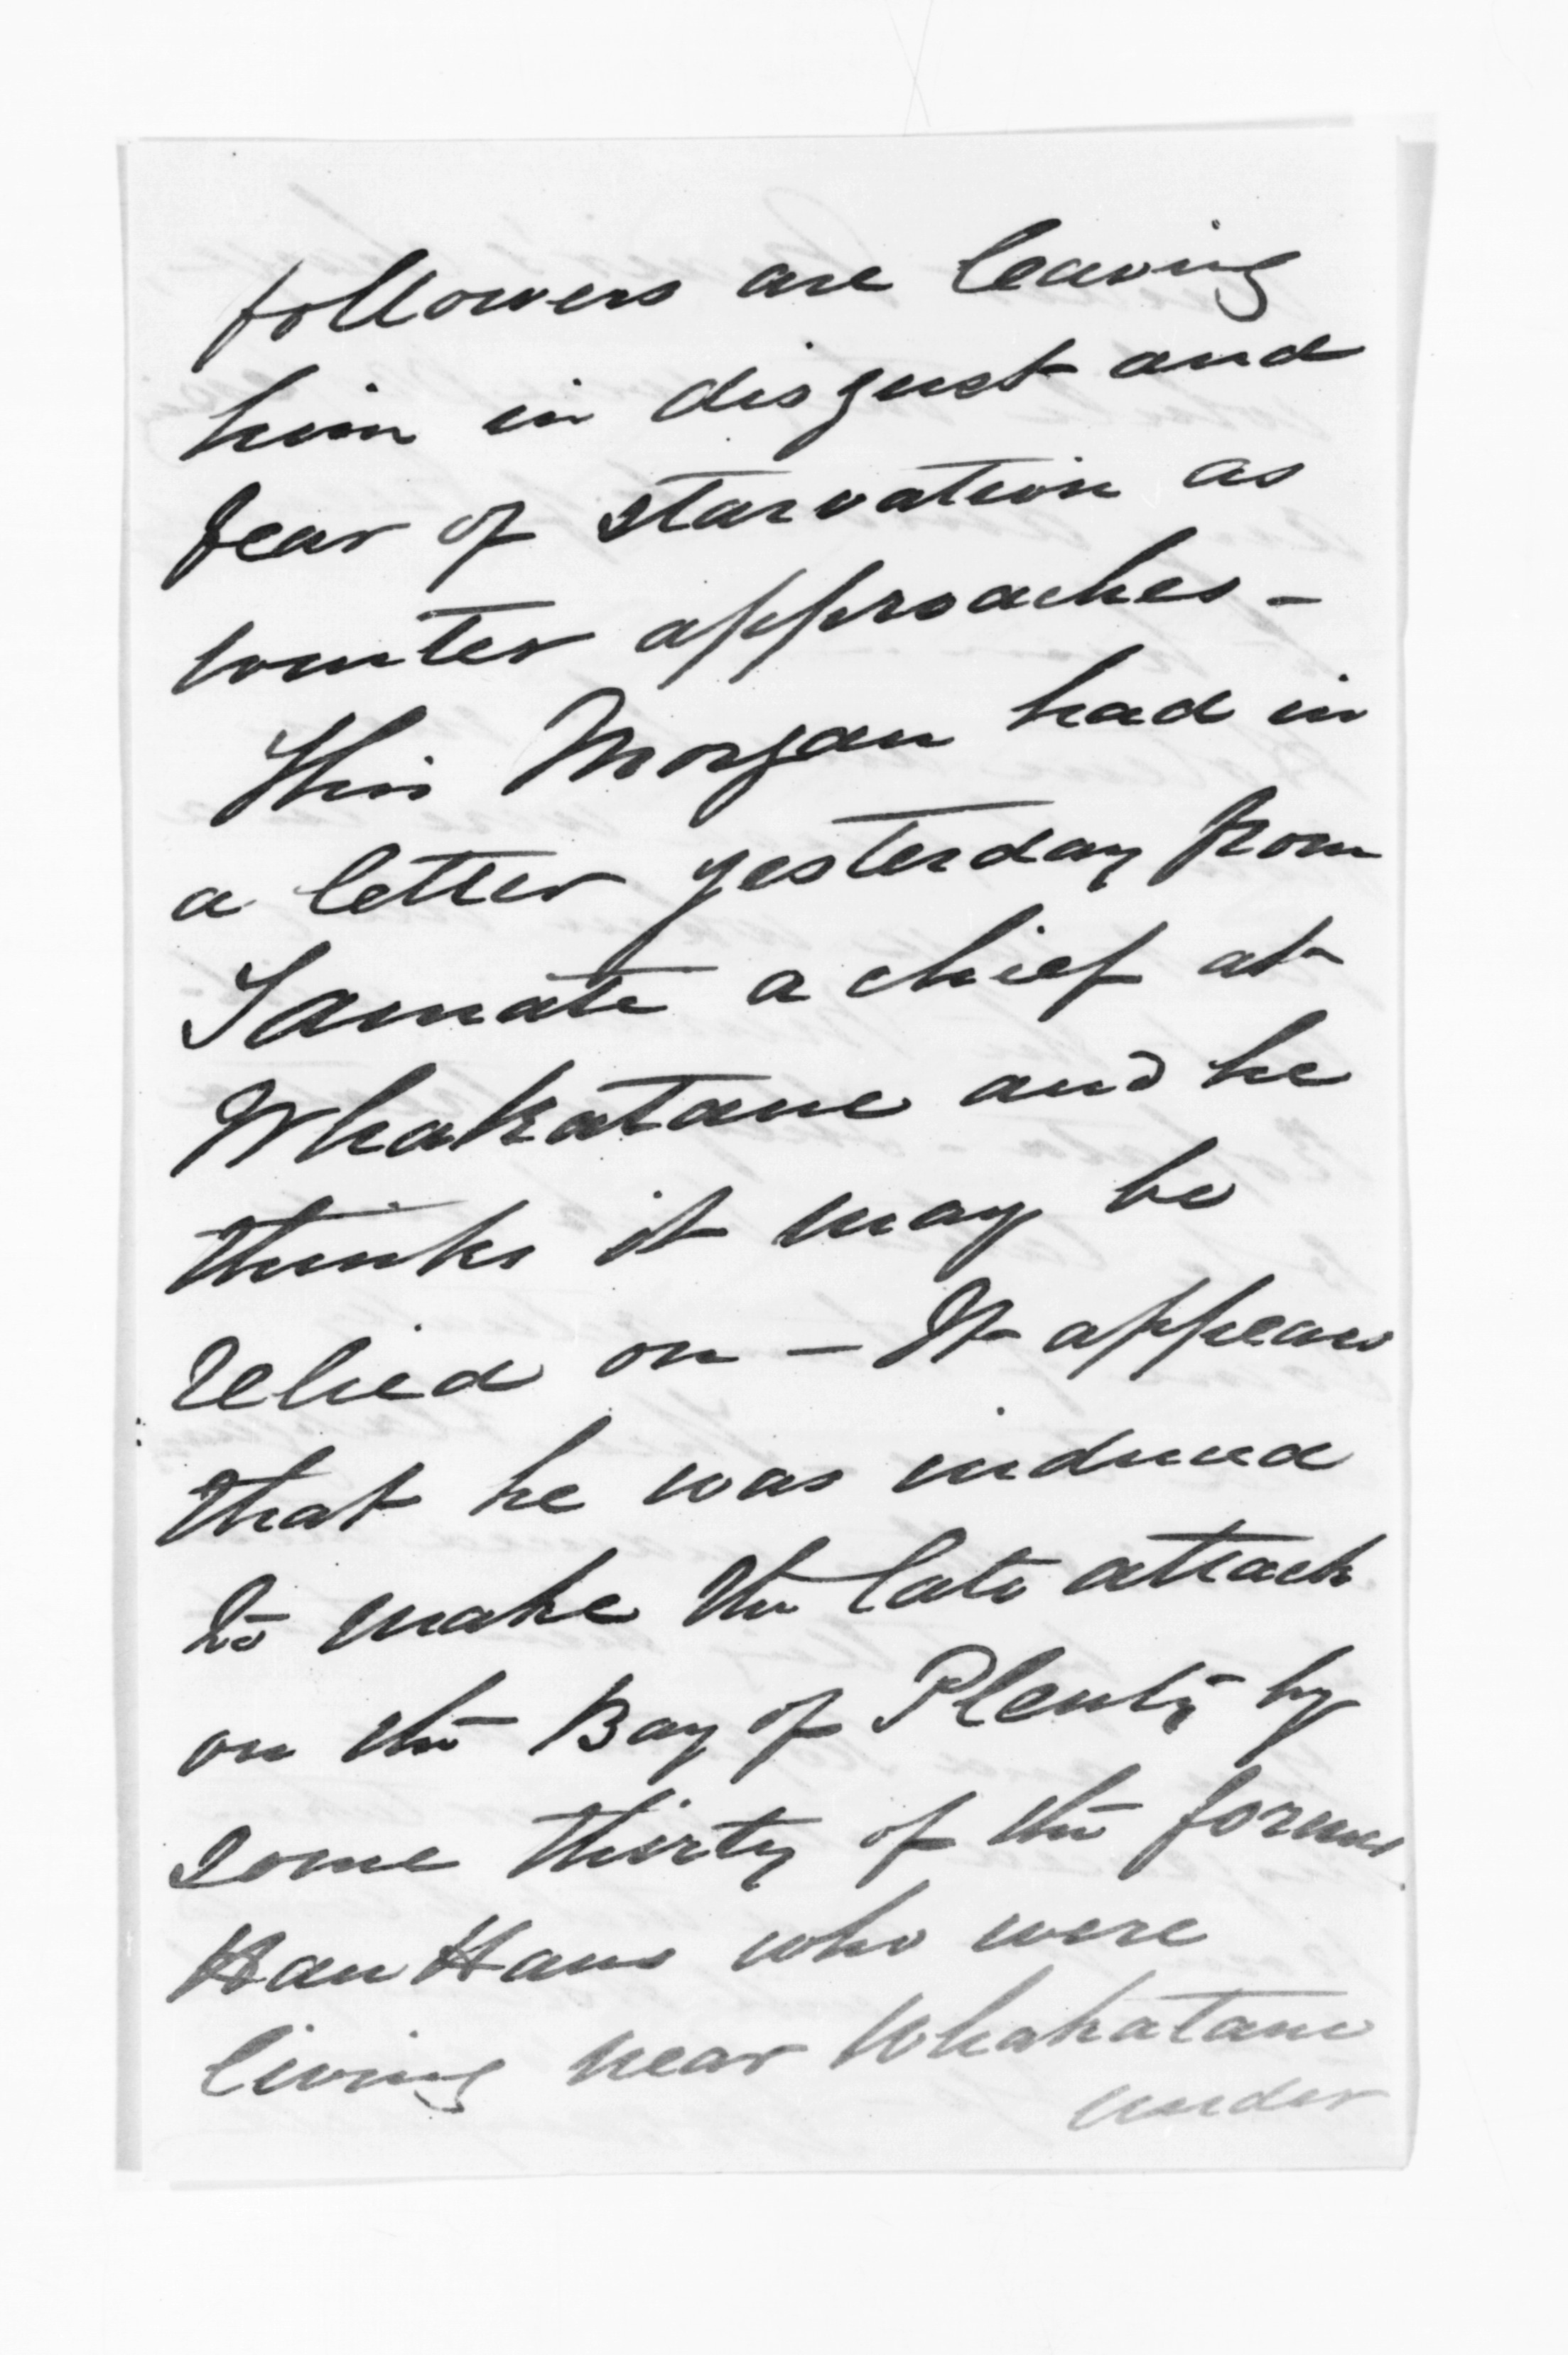 followers are leaving
him in disgust and
fear of starvation as
winter approaches -
This Morgan had in
a letter yesterday from
Tamate a chief at
Whakatane and he
thinks it may be
relied on - It appears
that he was induced
to make the late attack
on the Bay of Plenty by
some thirty of the former
Hau Haus who were
living near Whakatane
under